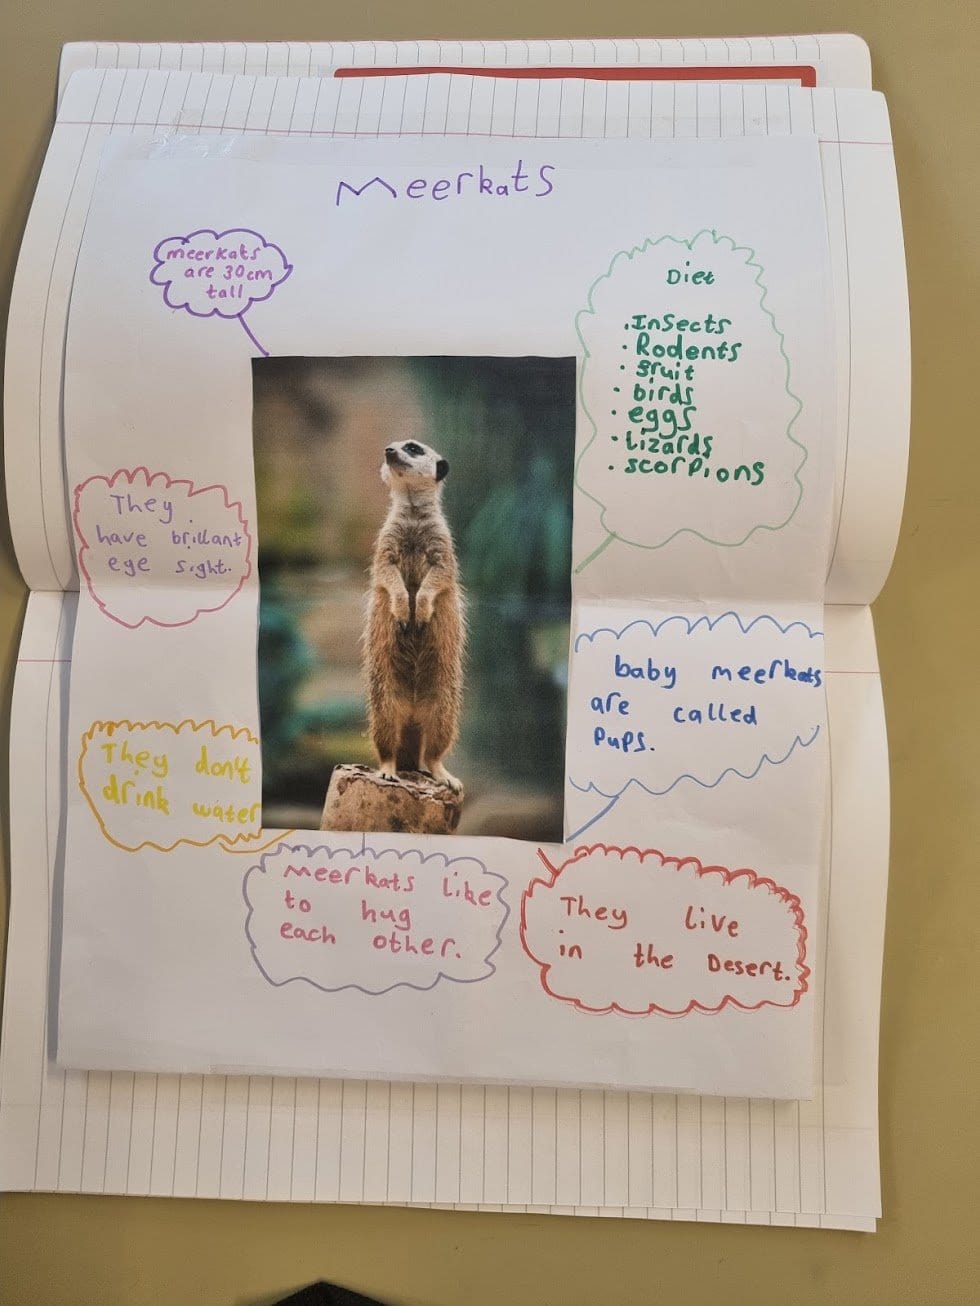 Meerkats
meerkats
are 30cm
tall
Diet
. Insects
· Rodents
· fruit
· birds
· eggs
· Lizards
· scorpions
They
have brillant
eye sight.
baby meerkats
are called
Pups.
They don't
drink water
Meerkats like
to hug
each other.
They live
in the Desert.